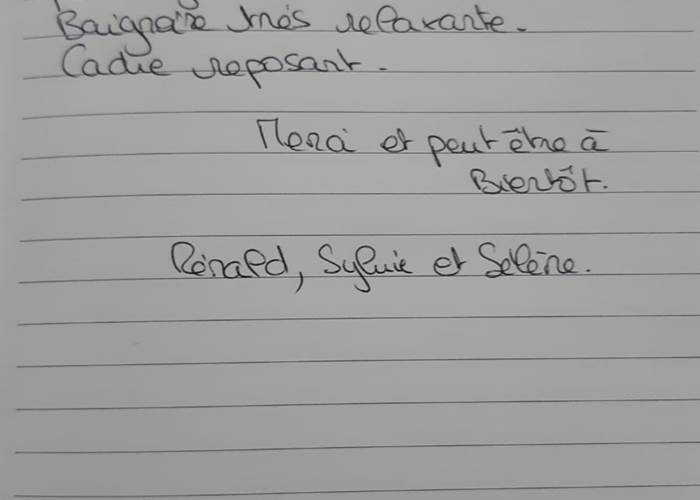 Baignoire très relaxante.
Cadre reposant.
Merci et peut être à
Bientôt.
Rénald, Sylvie et Sélène.